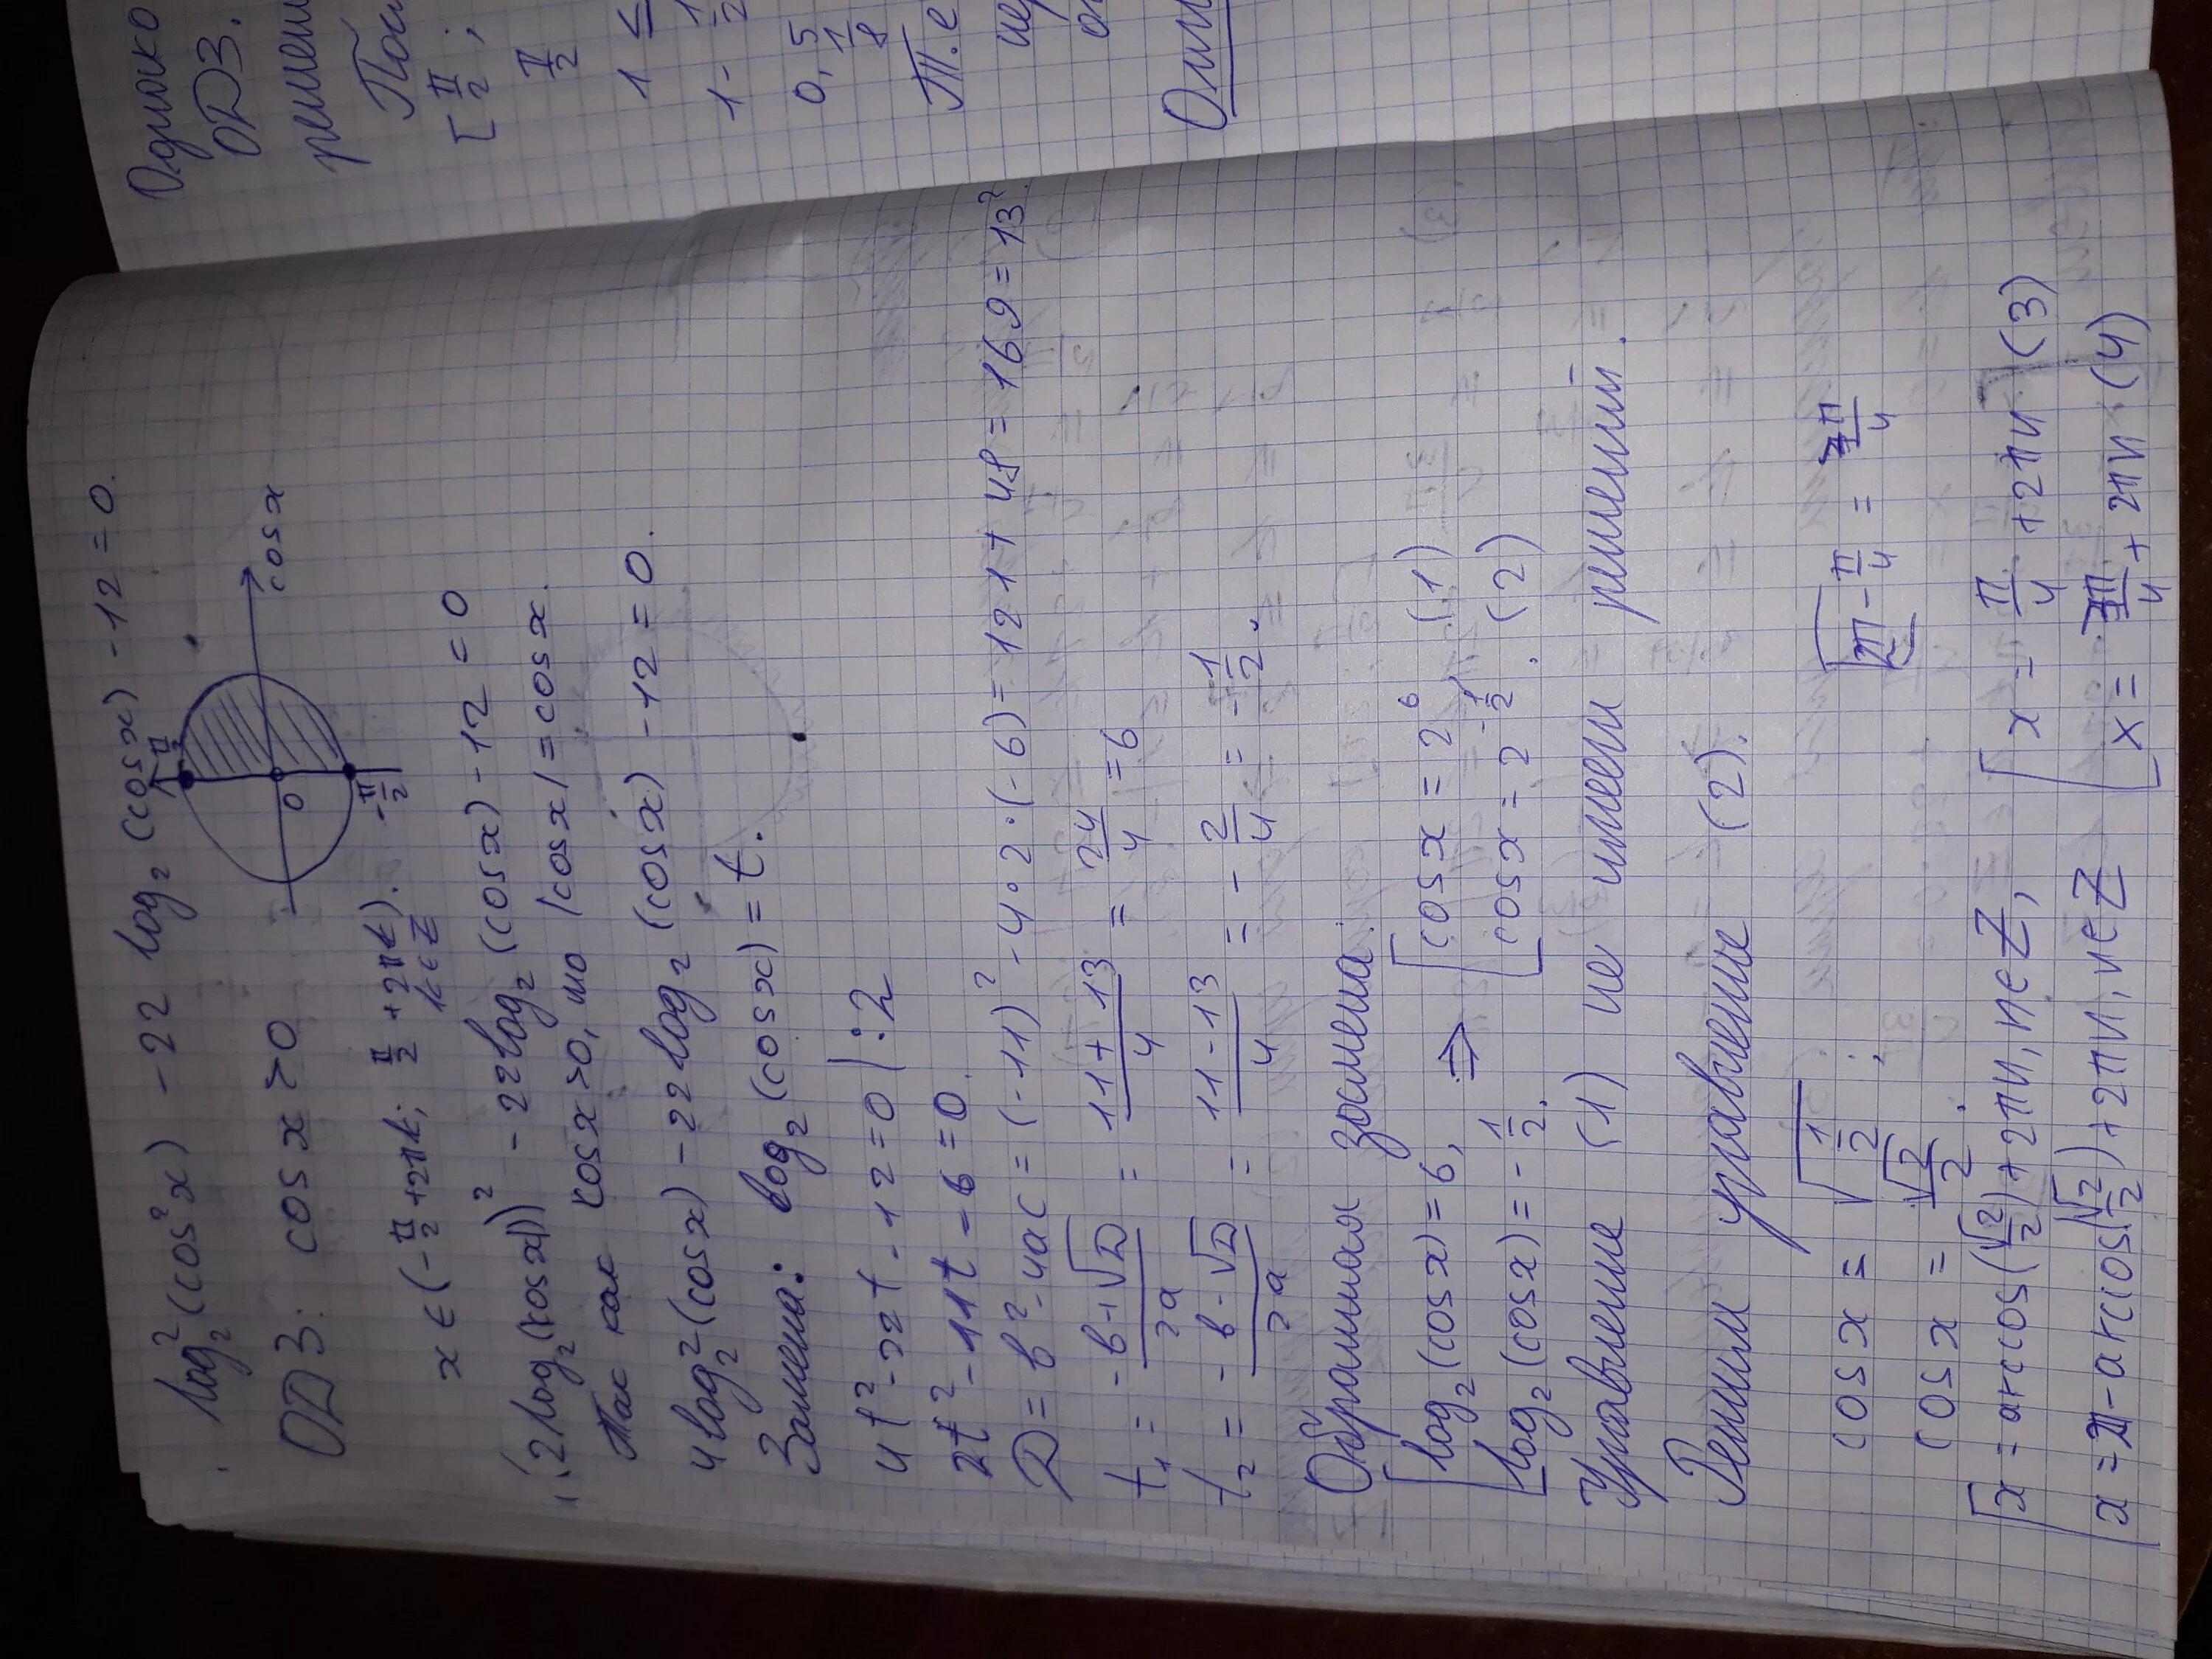 log₂²(cos²x) - 22 log₂(cosx) - 12 = 0.
ОДЗ: cosx > 0
π/2
0
cosx
-π/2
x ∈ (-π/2 + 2πk; π/2 + 2πk).
k ∈ Z
(2log₂(|cosx|))² - 22log₂(cosx) - 12 = 0
Так как cosx > 0, то |cosx| = cosx.
4log₂²(cosx) - 22log₂(cosx) - 12 = 0.
Замена: log₂(cosx) = t.
4t² - 22t - 12 = 0 | :2
2t² - 11t - 6 = 0
D = b² - 4ac = (-11)² - 4·2·(-6) = 121 + 48 = 169 = 13².
t₁ = (-b+√D)/2a = (11+13)/4 = 24/4 = 6
t₂ = (-b-√D)/2a = (11-13)/4 = -2/4 = -1/2.
Обратная замена:
[log₂(cosx) = 6, ⇒ [cosx = 2⁶ (1)
[log₂(cosx) = -1/2. [cosx = 2^(-1/2). (2)
Уравнение (1) не имеет решений.
Решим уравнение (2).
cosx = √(1/2);
2π - π/4 = 7π/4
cosx = √2/2.
[x = arccos(√2/2) + 2πn, n∈Z, [x = π/4 + 2πn (3)
[x = 2π - arccos(√2/2) + 2πn, n∈Z [x = 7π/4 + 2πn (4)
Однако
ОДЗ.
решен
[π/2;
π/2
1 ≤
1 -
0,5
1/8
Т.е